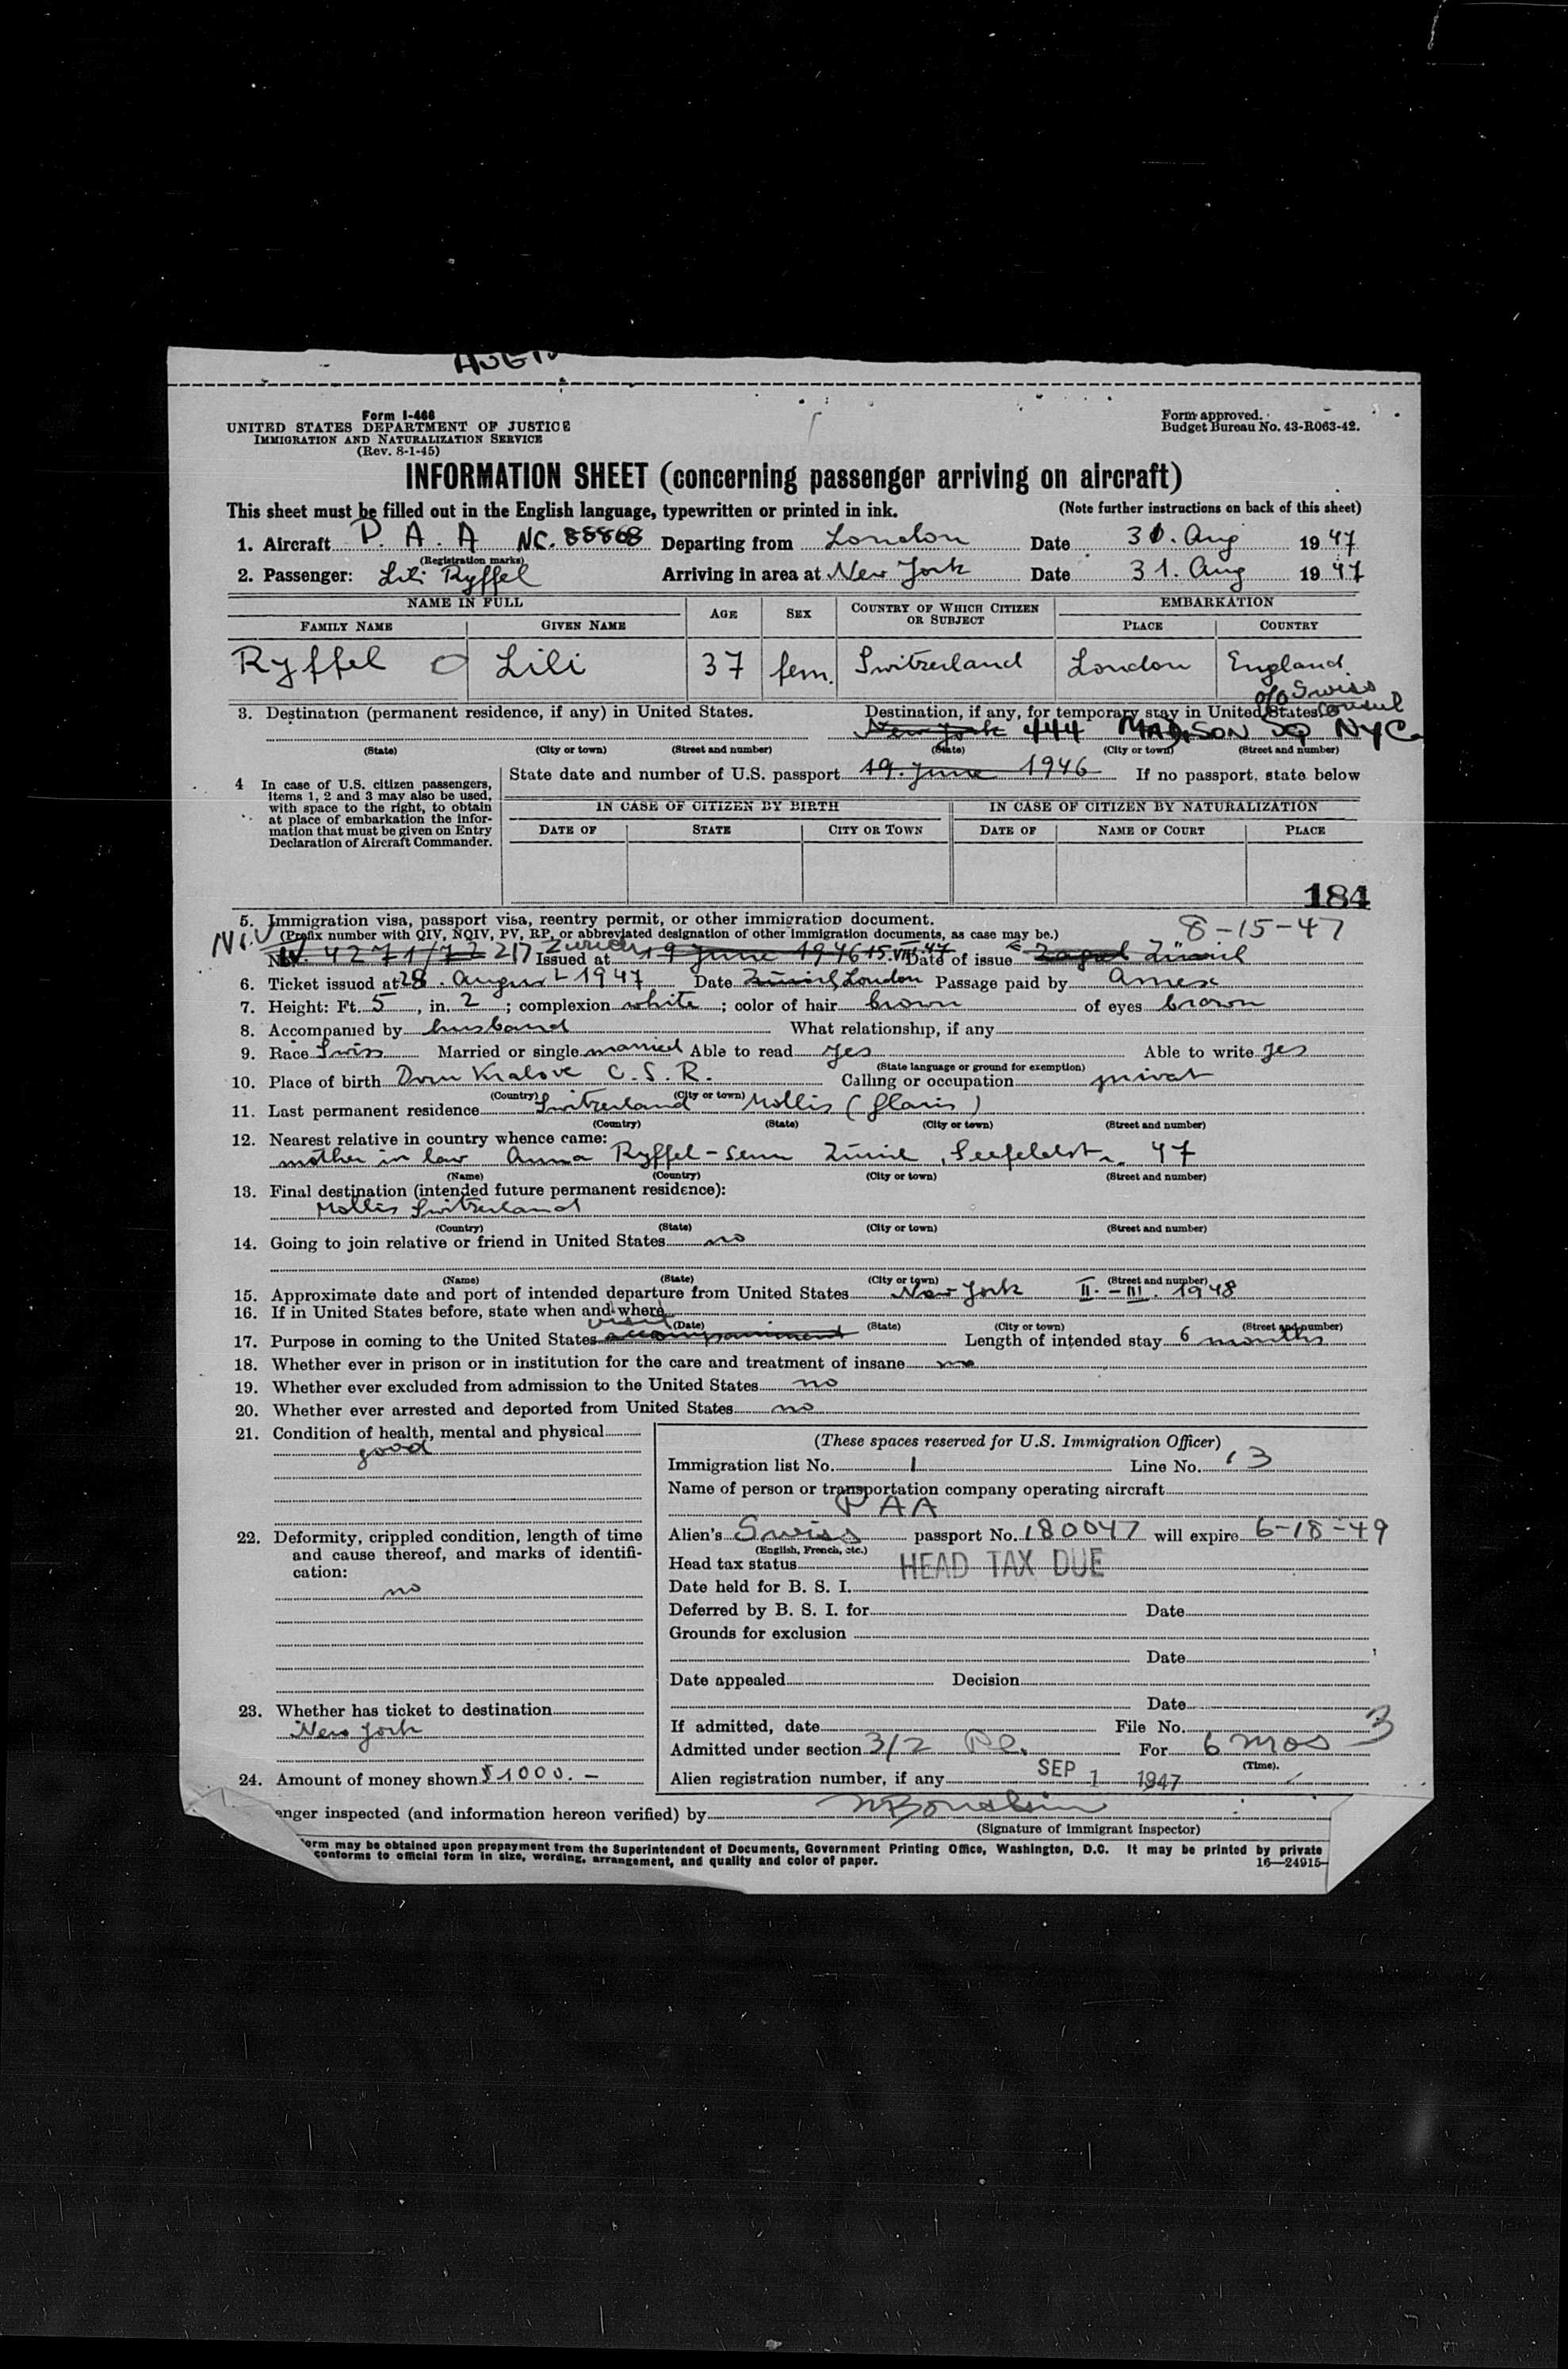 Form I-466
UNITED STATES DEPARTMENT OF JUSTICE
IMMIGRATION AND NATURALIZATION SERVICE
(Rev. 8-1-45)
Form approved.
Budget Bureau No. 43-R063-42.
INFORMATION SHEET (concerning passenger arriving on aircraft)
This sheet must be filled out in the English language, typewritten or printed in ink. (Note further instructions on back of this sheet)
1. Aircraft P. A. A NC. 88868 Departing from London Date 31. Aug 1947
(Registration marks)
2. Passenger: Lili Ryffel Arriving in area at New York Date 31. Aug 1947
NAME IN FULL AGE SEX COUNTRY OF WHICH CITIZEN OR SUBJECT EMBARKATION
FAMILY NAME GIVEN NAME PLACE COUNTRY
Ryffel Lili 37 fem. Switzerland London England
c/o Swiss
consul
3. Destination (permanent residence, if any) in United States. Destination, if any, for temporary stay in United States.
New York 444 MADISON SQ NYC
(State) (City or town) (Street and number) (State) (City or town) (Street and number)
4 In case of U.S. citizen passengers, items 1, 2 and 3 may also be used, with space to the right, to obtain at place of embarkation the information that must be given on Entry Declaration of Aircraft Commander.
State date and number of U.S. passport 19. June 1946 If no passport, state below
IN CASE OF CITIZEN BY BIRTH IN CASE OF CITIZEN BY NATURALIZATION
DATE OF STATE CITY OR TOWN DATE OF NAME OF COURT PLACE
184
5. Immigration visa, passport visa, reentry permit, or other immigration document. 8-15-47
(Prefix number with QIV, NQIV, PV, RP, or abbreviated designation of other immigration documents, as case may be.)
NIV No. IV. 4271/72 217 Issued at Zurich 19 June 1946 15. VIII 47 Date of issue Zagreb Zürich
6. Ticket issued at 28. August 1947 Date Zürich London Passage paid by Amex
7. Height: Ft. 5, in. 2; complexion white; color of hair brown of eyes brown
8. Accompanied by husband What relationship, if any
9. Race Swiss Married or single married Able to read yes Able to write yes
(State language or ground for exemption)
10. Place of birth Dvur Kralove C. S. R. Calling or occupation privat
(Country) (City or town)
11. Last permanent residence Switzerland Mollis (Glaris)
(Country) (State) (City or town) (Street and number)
12. Nearest relative in country whence came:
mother in law Anna Ryffel-Senn Zürich, Seefeldstr. 47
(Name) (Country) (City or town) (Street and number)
13. Final destination (intended future permanent residence):
Mollis Switzerland
(Country) (State) (City or town) (Street and number)
14. Going to join relative or friend in United States no
(Name) (State) (City or town) (Street and number)
15. Approximate date and port of intended departure from United States New York II. - III. 1948
16. If in United States before, state when and where
(Date) (State) (City or town) (Street and number)
17. Purpose in coming to the United States visit accompaniment Length of intended stay 6 months
18. Whether ever in prison or in institution for the care and treatment of insane no
19. Whether ever excluded from admission to the United States no
20. Whether ever arrested and deported from United States no
21. Condition of health, mental and physical
good
22. Deformity, crippled condition, length of time and cause thereof, and marks of identification:
no
23. Whether has ticket to destination
New York
24. Amount of money shown $1000.-
(These spaces reserved for U.S. Immigration Officer)
Immigration list No. 1 Line No. 13
Name of person or transportation company operating aircraft
PAA
Alien's Swiss passport No. 180047 will expire 6-18-49
(English, French, etc.)
Head tax status HEAD TAX DUE
Date held for B. S. I.
Deferred by B. S. I. for Date
Grounds for exclusion
Date
Date appealed Decision
Date
If admitted, date File No. 3
Admitted under section 3/2 For 6 mos
(Time).
Alien registration number, if any SEP 1 1947
enger inspected (and information hereon verified) by
(Signature of immigrant inspector)
orm may be obtained upon prepayment from the Superintendent of Documents, Government Printing Office, Washington, D.C. It may be printed by private
conforms to official form in size, wording, arrangement, and quality and color of paper.
16—24915-